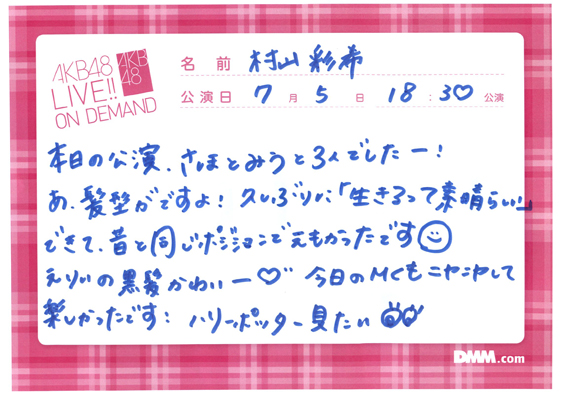 AKB48
LIVE!!
ON DEMAND
AKB
48
名前 村山彩希
公演日 7月5日 18:30♡公演
本日の公演、さほとみうと3人でしたー!
あ、髪型がですよ! 久しぶりに「生きるって素晴らしい」
できて、昔と同じポジションで元もかったです☺
えりいの黒髪かわいー♡ 今日のMCもニヤニヤして
楽しかったです! ハリーポッター見たい👀
DMM.com